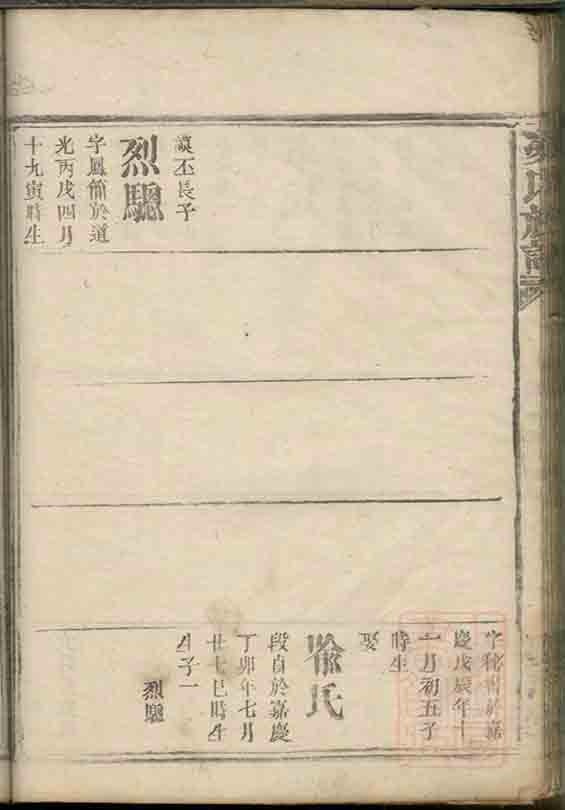 氏族譜
丕長子
烈驄
字鳳簡於道
光丙戌四月
十九寅時生
字秘書於嘉
慶戊辰年十
一月初五子
時生
娶
徐氏
段自於嘉慶
丁卯年七月
廿七巳時生
生子一
烈驄